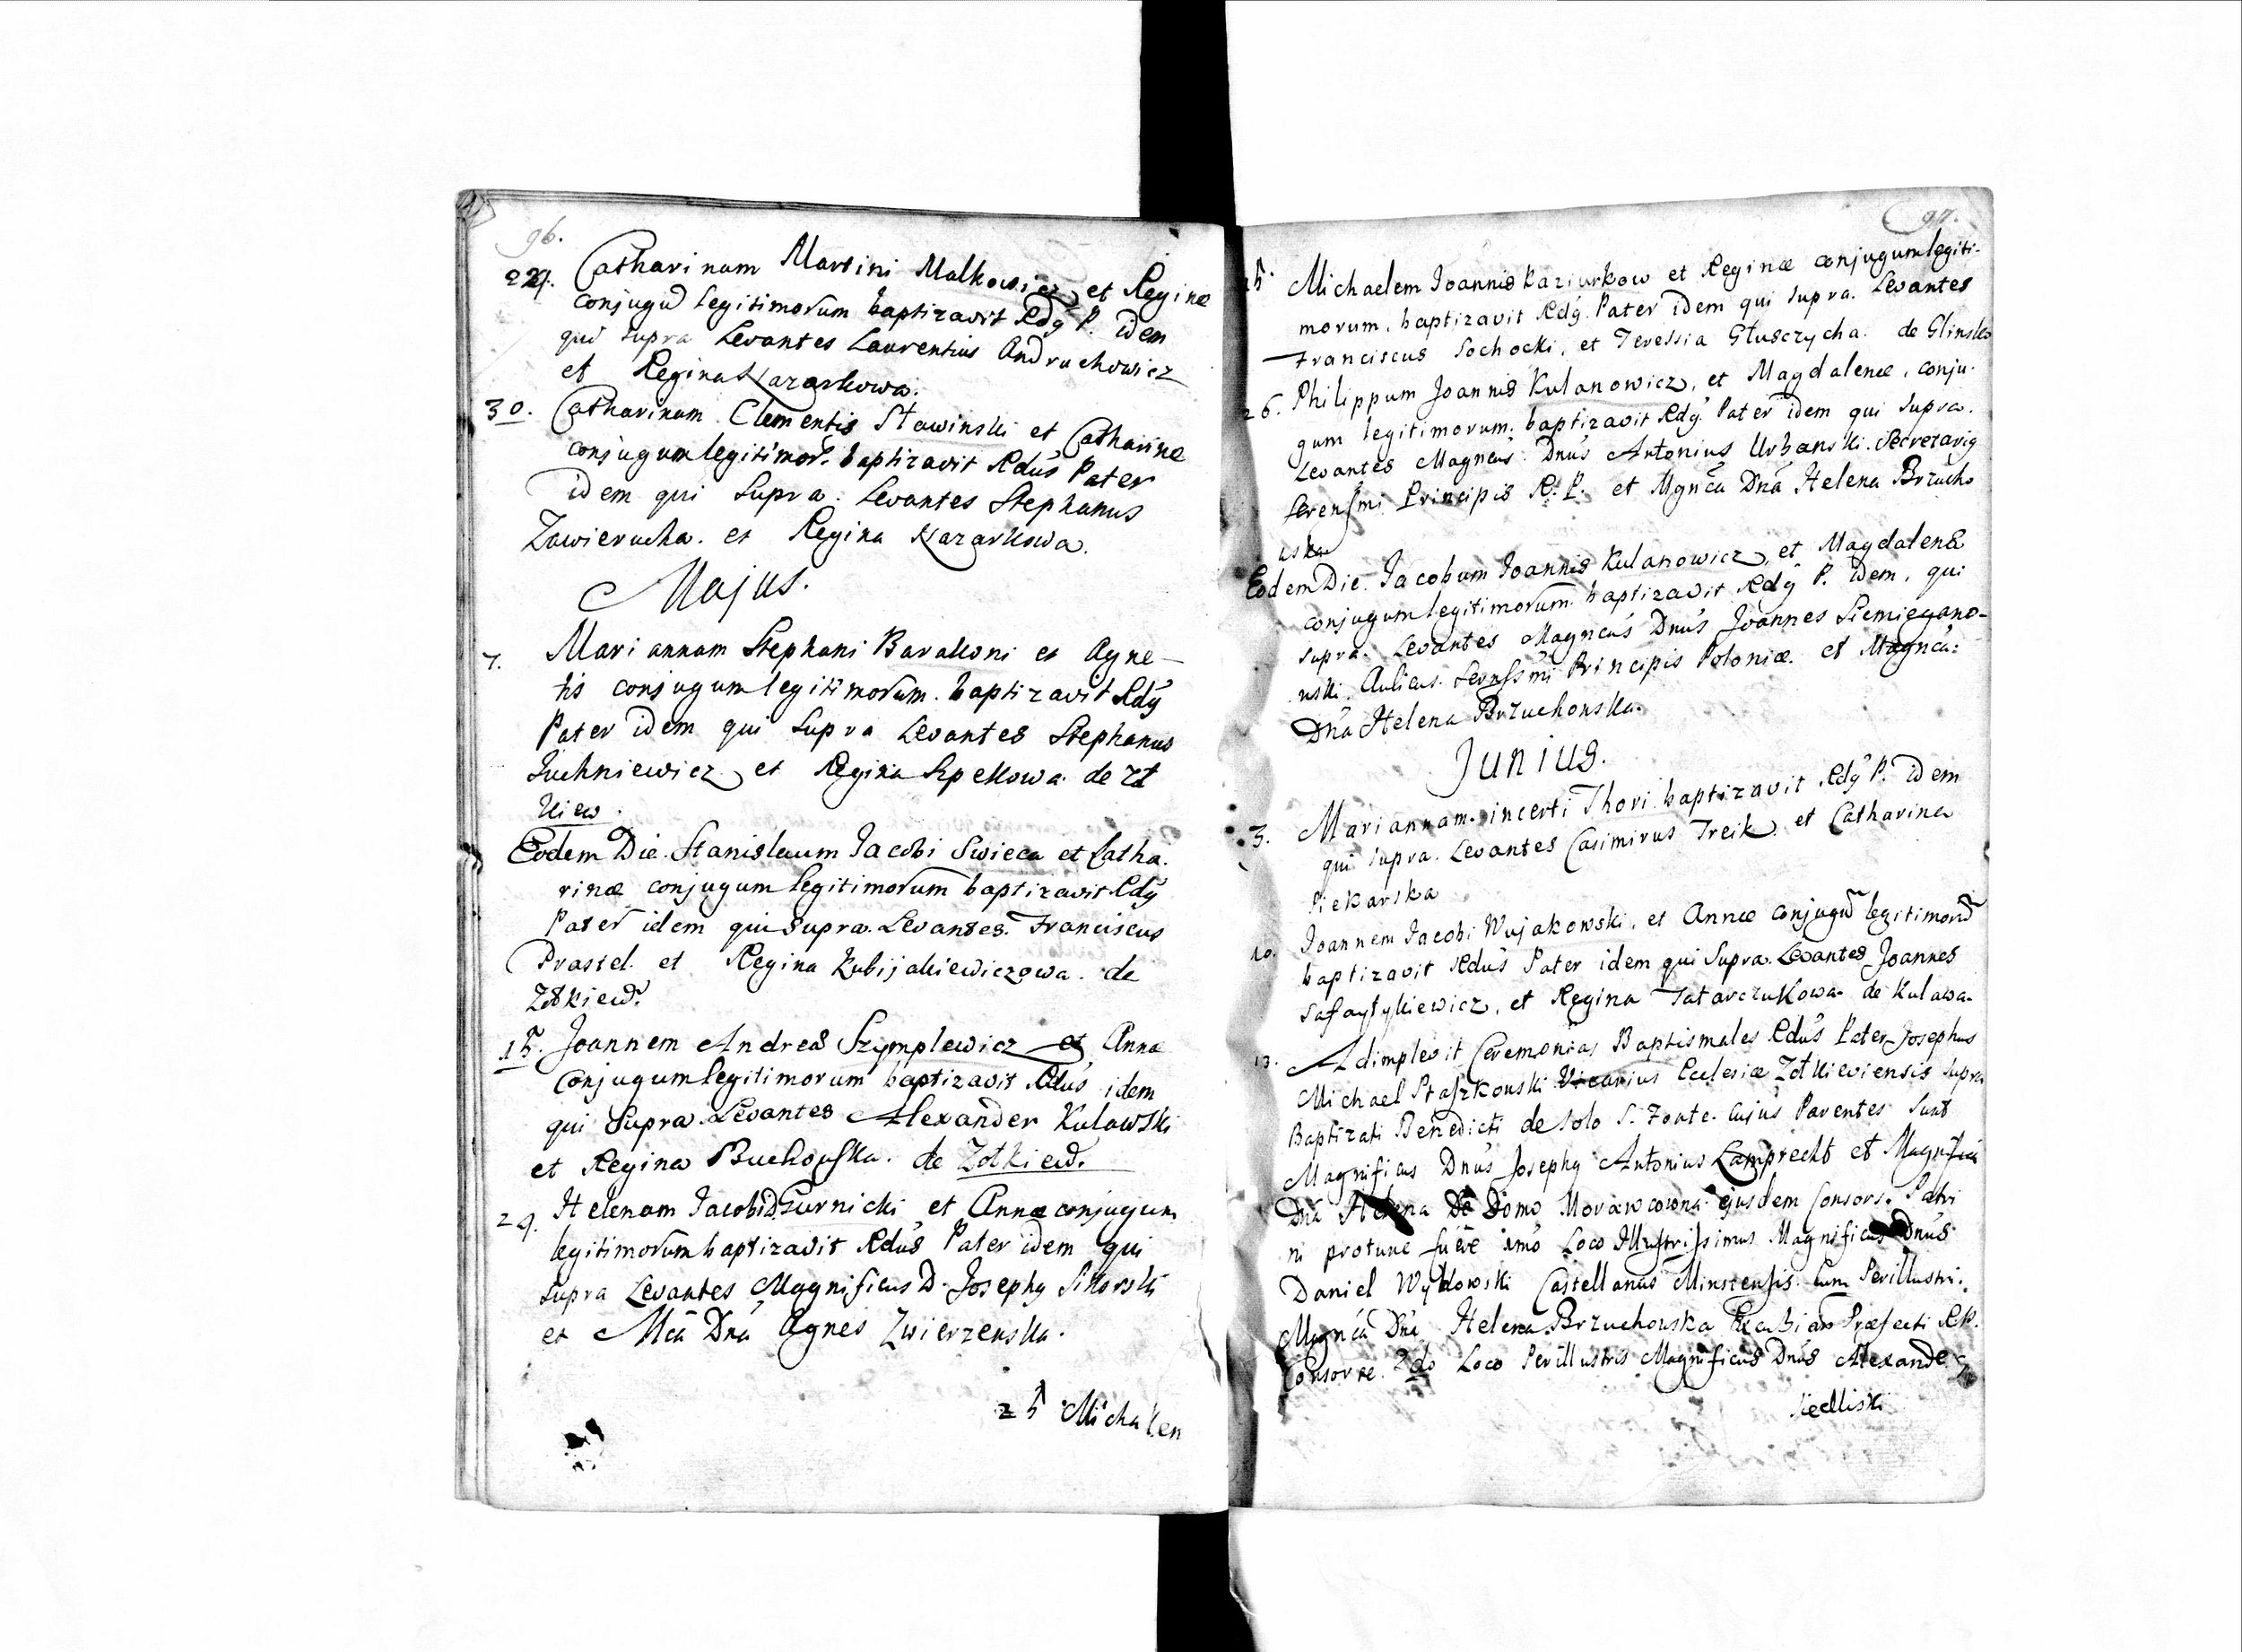 96.
29. Catharinam Martini Malkowicz et Reginæ
conjugũ legitimorum baptizavit Rdꝰ P. idem
qui supra Levantes Laurentius Andruchowicz
et Regina Kazarkowa.
30. Catharinam Clementis Stawinski et Catharinæ
conjugum legitimor. baptizavit Rdus Pater
idem qui Supra. Levantes Stephanus
Zawierucha. et Regina Kazarkowa.
Majus.
7. Mariannam Stephani Barakoni et Agne-
tis conjugum legitimorum. baptizavit Rdꝰ
Pater idem qui Supra Levantes Stephanus
Juchniewicz et Regina Szpekowa de Zł
kiew.
Eodem Die. Stanislaum Jacobi Swieca et Catha.
rinæ conjugum legitimorum baptizavit Rdꝰ
Pater idem qui Supra. Levantes. Franciscus
Prastel. et Regina Kubijakiewiczowa. de
Zołkiew.
15. Joannem Andreæ Szymplewicz et Annæ
Conjugum legitimorum baptizavit Rdus idem
qui Supra. Levantes Alexander Kulawski
et Regina Buchowska. de Zołkiew.
24. Helenam Jacobi Gurnicki et Annæ conjugum
legitimorum baptizavit Rdus Pater idem qui
supra Levantes Magnificus D. Josephꝰ Sikorski
et Mca Dna Agnes Zwierzenska.
25 Michalem
97.
25. Michaelem Joannis Kaziurkow et Reginæ conjugum legiti-
morum. baptizavit Rdꝰ. Pater idem qui supra. Levantes
Franciscus Sochocki, et Teressia Głusczycha. de Glinsko
26. Philippum Joannis Kulanowicz, et Magdalenæ, conju-
gum legitimorum. baptizavit Rdꝰ. Pater idem qui supra.
Levantes Magncus Dnus Antonius Urbanski. Secretariꝰ
Serenssmi Principis R. P. et Mgnca Dna Helena Brzucho
uska
Eodem Die. Jacobum Joannis Kulanowicz, et Magdalenæ
conjugum legitimorum. baptizavit Rdꝰ P. idem, qui
supra. Levantes Magncus Dnus Joannes Siemiegano-
uski. Aulicus. Sernssmi Principis Poloniæ. et Magnca:
Dna Helena Brzuchonska.
Junius.
3. Mariannam. incerti Thori baptizavit Rdꝰ P. idem
qui supra. Levantes Casimirus Treik. et Catharina
Piekarska
10. Joannem Jacobi Wujakowski, et Annæ conjugũ legitimorũ
baptizavit Rdus Pater idem qui Supra. Levantes Joannes
Safaytykiewicz, et Regina Tatarczukowa de Kulawa.
13. Adimplevit Ceremonias Baptismales Rdus Pater Josephus
Michael Staszkouski Vicarius Ecclesiæ Zołkieviensis Supra
Baptizati Benedicti de Solo S. Fonte. Cujus Parentes Sunt
Magnificus Dnus Josephꝰ Antonius Lamprecht et Magnifica
Dna Helena De Domo Morawcowna ejusdem Consors. Patri
ni protunc fuere imo Loco Illustrissimus Magnificus Dnus
Daniel Wyklowski Castellanus Minstensis. Cum Perillustri.
Magnca Dna Helena Brzuchouska Præfecti R.P.
Consorte. 2do Loco Perillustris Magnificus Dnus Alexande
Siedliski